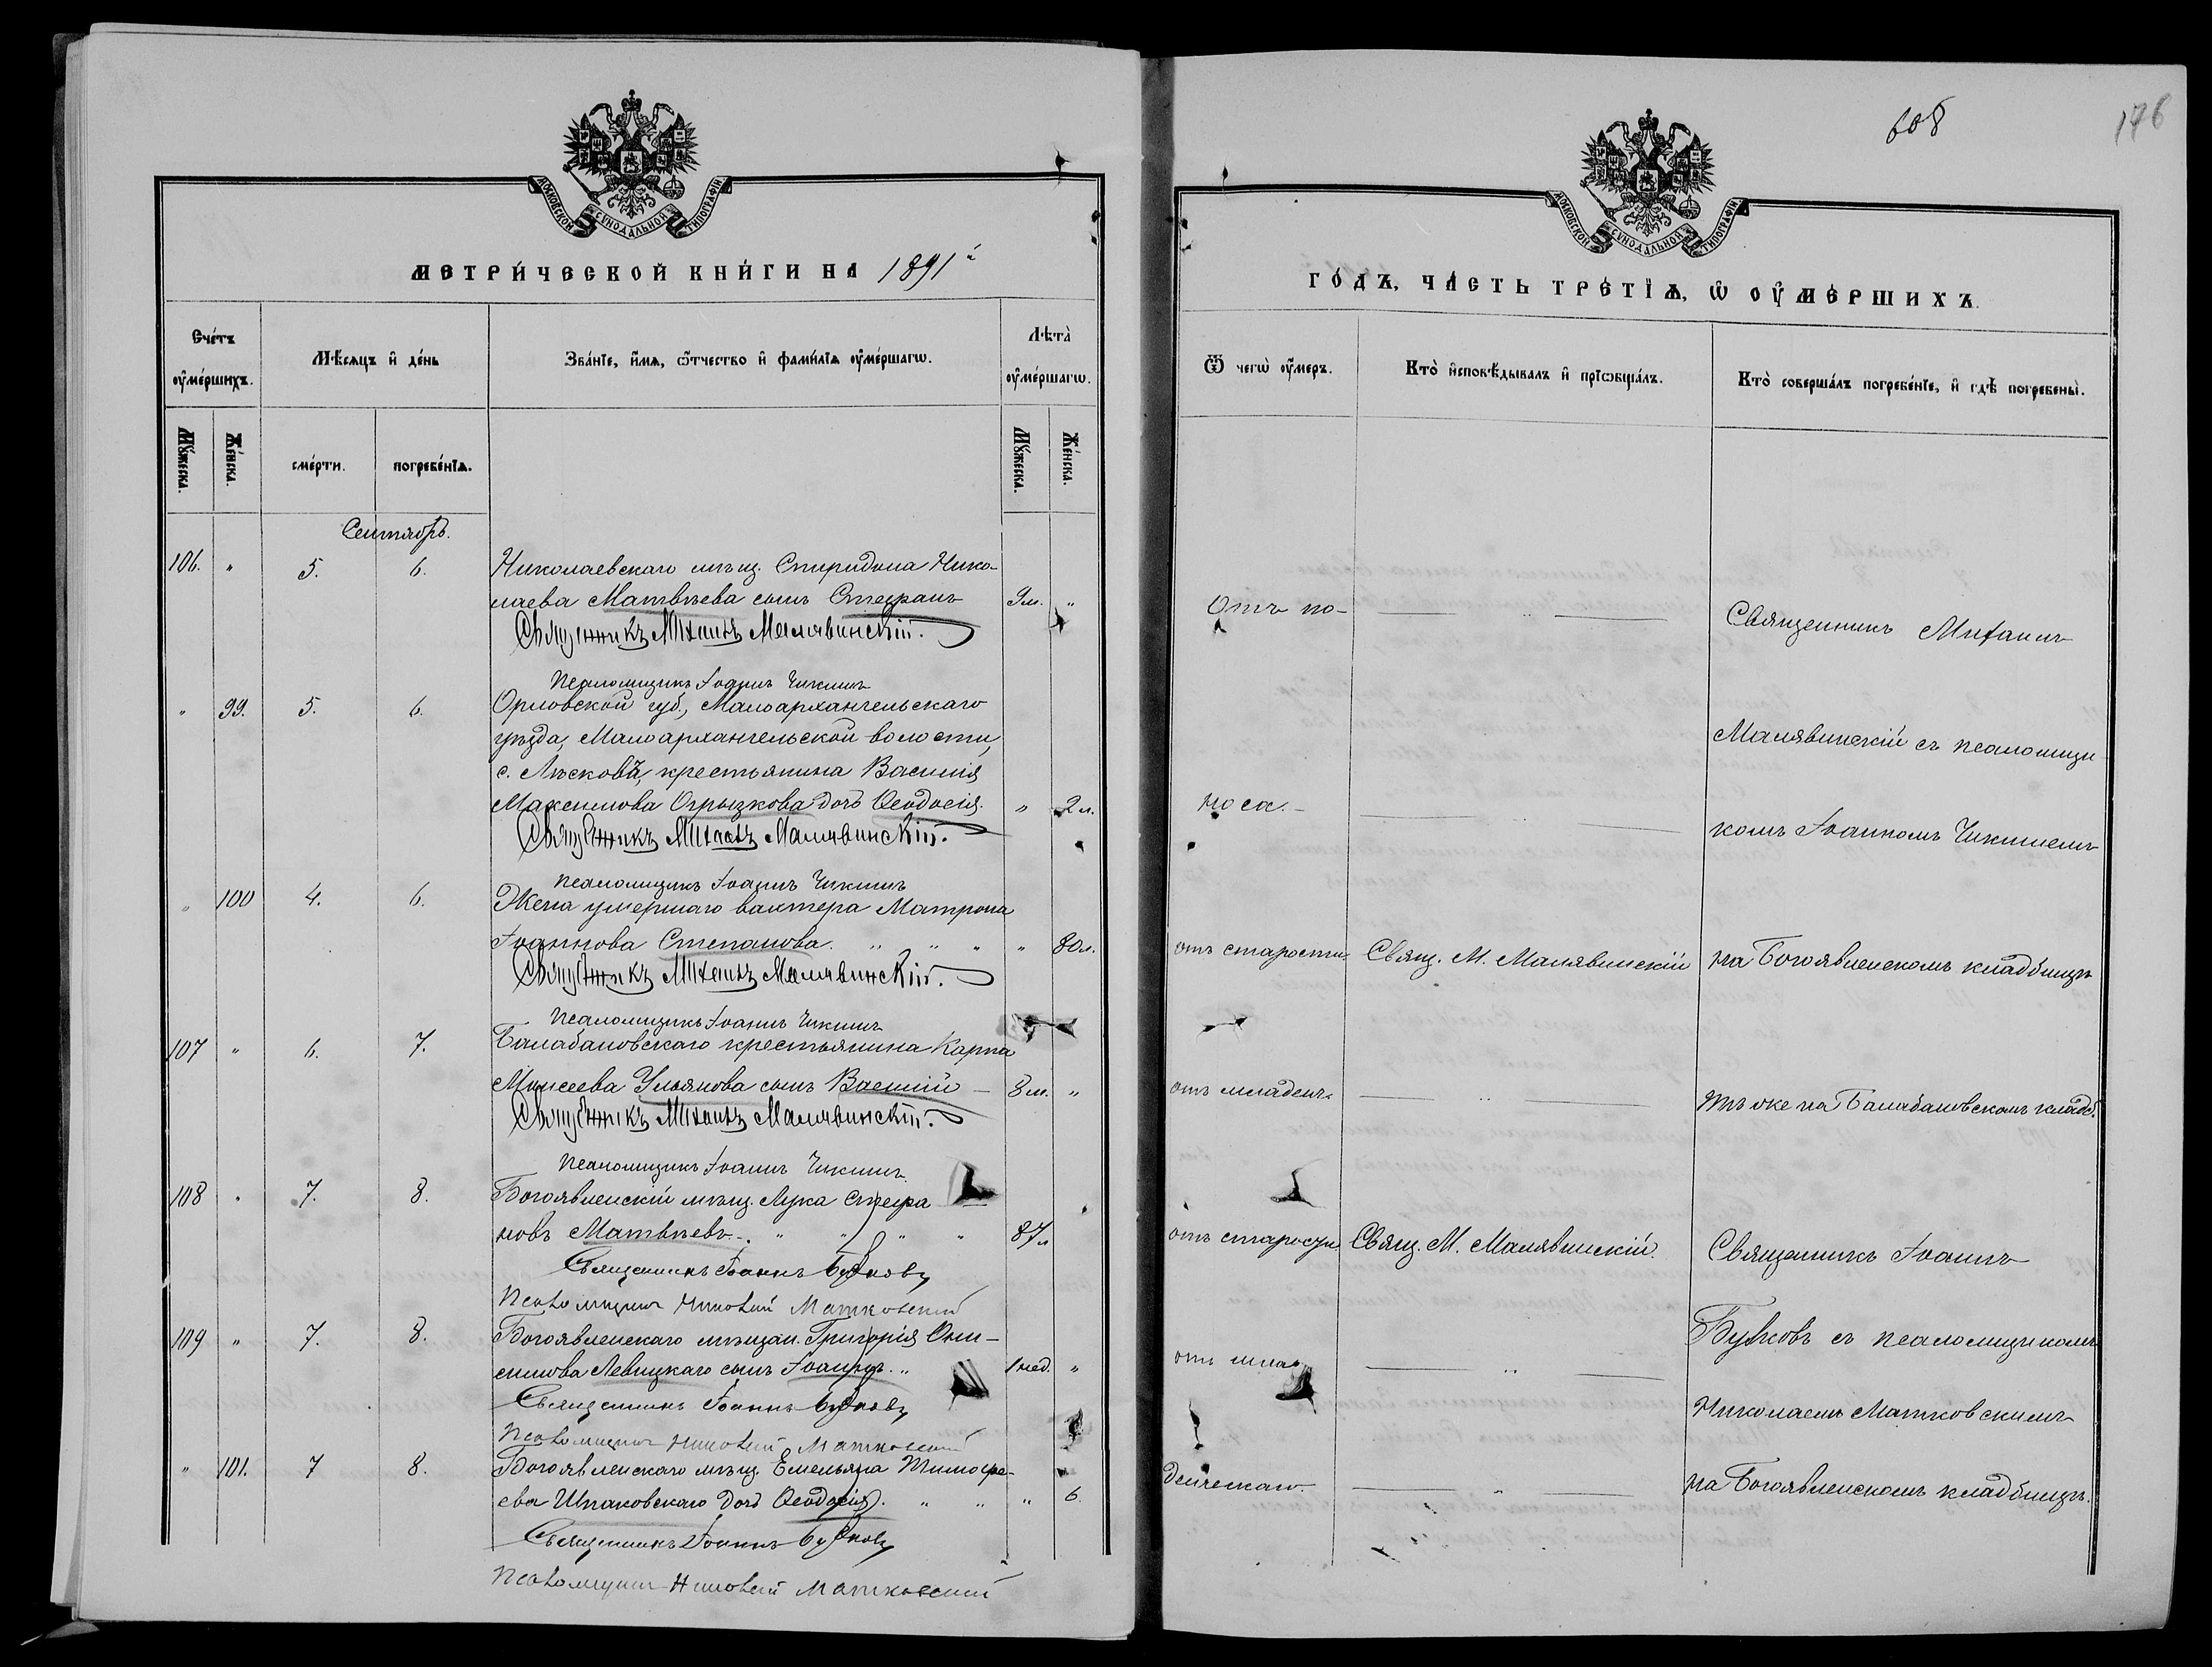 МОСКОВСКОЙ СѴНОДАЛЬНОЙ ТИПОГРАФІИ
МЕТРИ́ЧЕСКОЙ КНИ́ГИ НА 1891й
Сче́тъ ᲂу҆ме́ршихъ.
Мꙋ́жеска.
Же́нска.
Мѣ́сѧцъ и҆ де́нь
сме́рти.
погребе́нїѧ.
Зва́нїе, и҆́мѧ, ѻ҆́тчество и҆ фами́лїѧ ᲂу҆ме́ршагѡ.
Лѣ́та ᲂу҆ме́ршагѡ.
Мꙋ́жеска.
Же́нска.
Сентябрь.
106. " 5. 6. Николаевскаго мѣщ. Спиридона Нико-
лаева Матвѣева сынъ Стефанъ 9 м. "
Священникъ Михаилъ Малявинскій.
Псаломщикъ Іоаннъ Чикинъ
" 99. 5. 6. Орловской губ., Малоархангельскаго
уѣзда, Малоархангельской волости,
с. Лѣсковъ, крестьянина Василія
Максимова Огрызкова дочь Ѳеодосія. " 2 л.
Священникъ Михаилъ Малявинскій.
Псаломщикъ Іоаннъ Чикинъ
" 100 4. 6. Жена умершаго вахтера Матрона
Іоаннова Степанова. " " " " 80 л.
Священникъ Михаилъ Малявинскій.
Псаломщикъ Іоаннъ Чикинъ
107 " 6. 7. Балабановскаго крестьянина Карпа
Моисеева Ульянова сынъ Василій – 8 м. "
Священникъ Михаилъ Малявинскій.
Псаломщикъ Іоаннъ Чикинъ
108 " 7. 8. Богоявленскій мѣщ. Лука Стефа
новъ Матвѣевъ. " " " " 87 л
Священникъ Іоаннъ Бужковъ
Псаломщикъ Николай Матковскій
109 " 7. 8. Богоявленскаго мѣщан. Григорія Они-
симова Левицкаго сынъ Іоаннъ. " 1 нед. "
Священникъ Іоаннъ Бужковъ
Псаломщикъ Николай Матковскій
" 101. 7 8. Богоявленскаго мѣщ. Емельяна Тимофе-
ева Шпаковскаго дочь Ѳеодосія. " " " 6.
Священникъ Іоаннъ Бужковъ
Псаломщикъ Николай Матковскій
608
176
МОСКОВСКОЙ СѴНОДАЛЬНОЙ ТИПОГРАФІИ
ГО́ДЪ, ЧА́СТЬ ТРЕ́ТЇѦ, Ѡ҆ ОУ҆МЕ́РШИХЪ.
Ѿ чегѡ̀ ᲂу҆́меръ.
Кто̀ и҆сповѣ́дывалъ и҆ прїѡбща́лъ.
Кто̀ соверша́лъ погребе́нїе, и҆ гдѣ̀ погребены̀.
Отъ по- — " — Священникъ Михаилъ
Малявинскій съ псаломщи-
носа. – — " — комъ Іоанномъ Чикинымъ
отъ старости Свящ. М. Малявинскій на Богоявленскомъ кладбищѣ
отъ младенч. — " — Тѣ же на Балабановскомъ кладб.
отъ старости Свящ. М. Малявинскій. Священникъ Іоаннъ
Бужковъ съ псаломщикомъ
отъ мла- — " —
Николаемъ Матковскимъ
денческаго. — " — на Богоявленскомъ кладбищѣ.